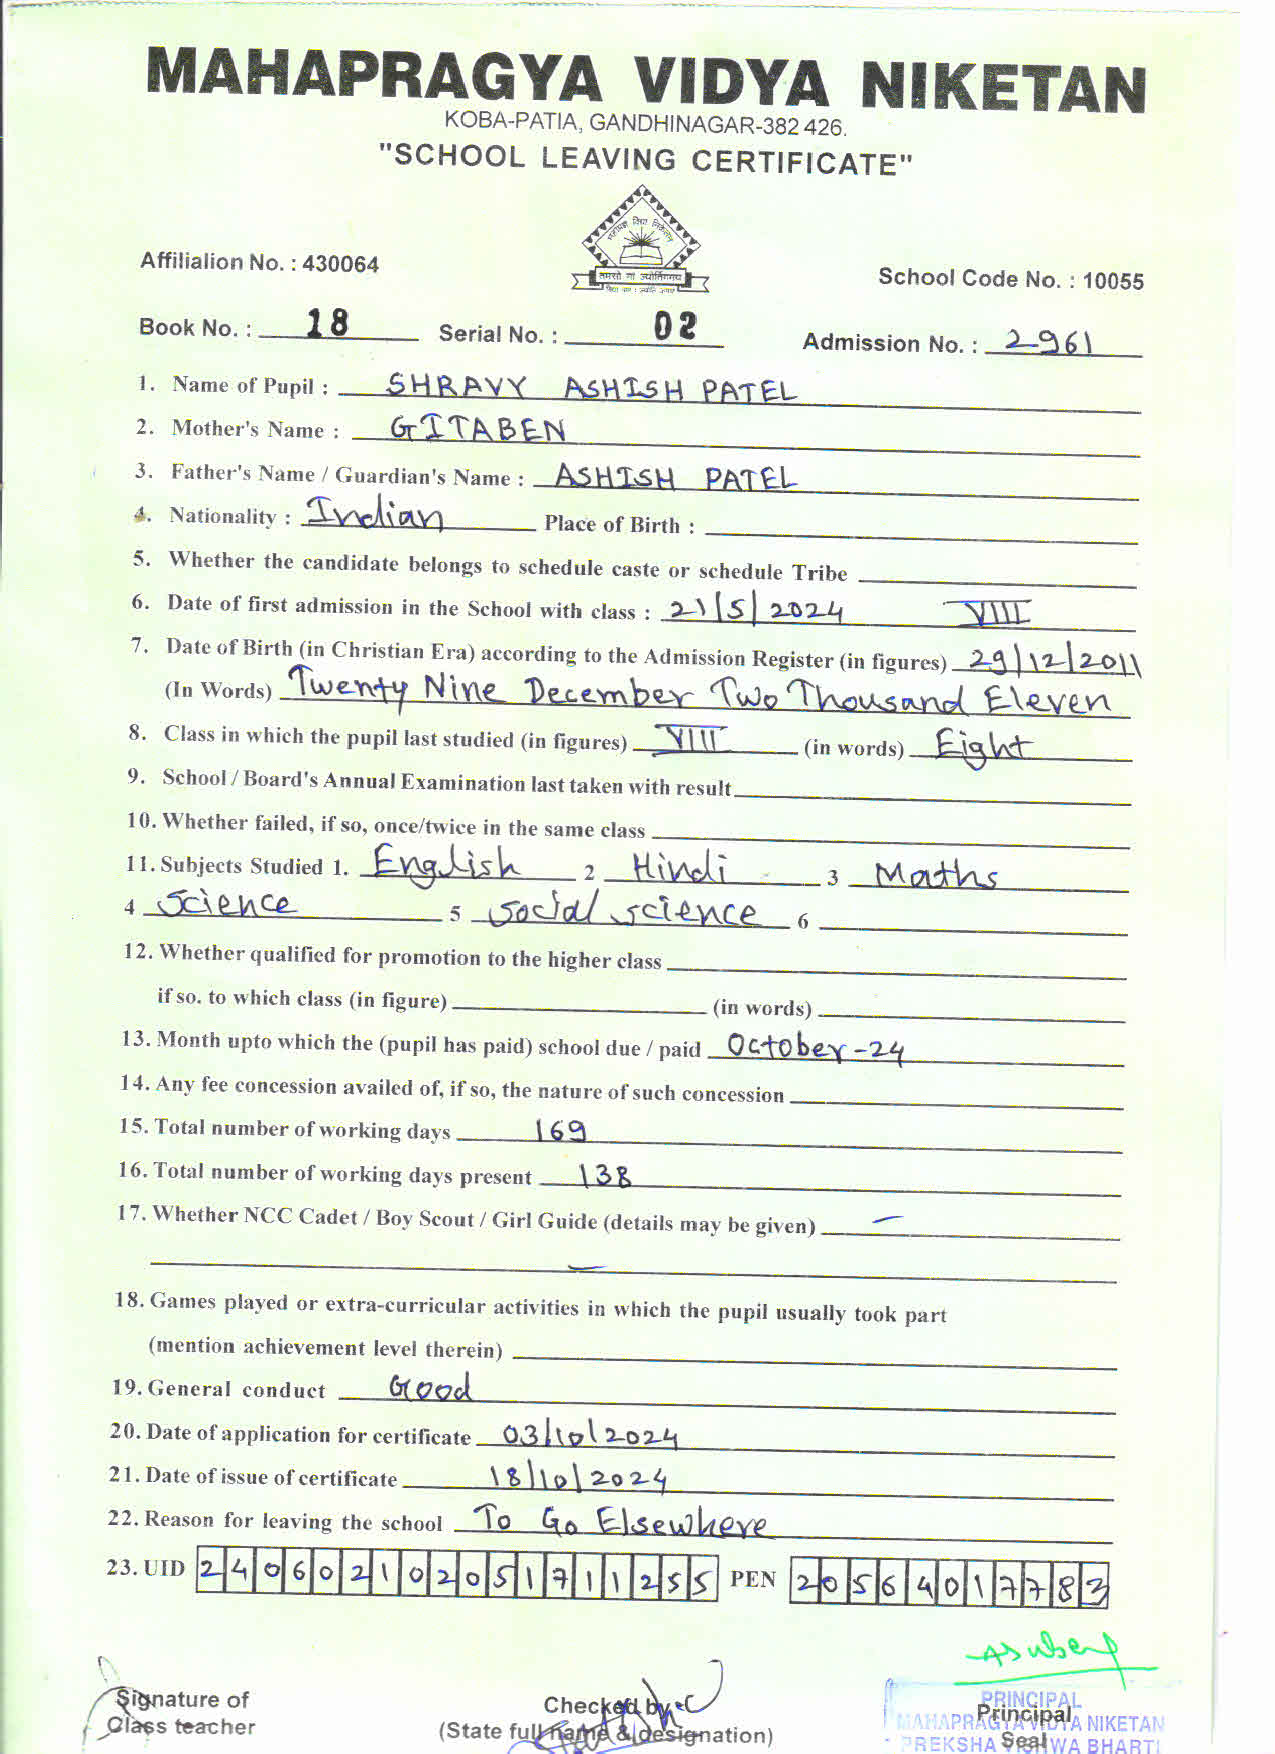 MAHAPRAGYA VIDYA NIKETAN
KOBA-PATIA, GANDHINAGAR-382 426.
"SCHOOL LEAVING CERTIFICATE"
महाप्रज्ञ विद्या निकेतन
तमसो मां ज्योर्तिगमय
Affilialion No. : 430064
School Code No. : 10055
Book No. : 18 Serial No. : 02 Admission No. : 2961
1. Name of Pupil : SHRAVY ASHISH PATEL
2. Mother's Name : GITABEN
3. Father's Name / Guardian's Name : ASHISH PATEL
4. Nationality : Indian Place of Birth :
5. Whether the candidate belongs to schedule caste or schedule Tribe
6. Date of first admission in the School with class : 21/5/2024 VIII
7. Date of Birth (in Christian Era) according to the Admission Register (in figures) 29/12/2011
(In Words) Twenty Nine December Two Thousand Eleven
8. Class in which the pupil last studied (in figures) VIII (in words) Eight
9. School / Board's Annual Examination last taken with result
10. Whether failed, if so, once/twice in the same class
11. Subjects Studied 1. English 2 Hindi 3 Maths
4 Science 5 Social science 6
12. Whether qualified for promotion to the higher class
if so. to which class (in figure) (in words)
13. Month upto which the (pupil has paid) school due / paid October-24
14. Any fee concession availed of, if so, the nature of such concession
15. Total number of working days 169
16. Total number of working days present 138
17. Whether NCC Cadet / Boy Scout / Girl Guide (details may be given) —
—
18. Games played or extra-curricular activities in which the pupil usually took part
(mention achievement level therein)
19. General conduct Good
20. Date of application for certificate 03/10/2024
21. Date of issue of certificate 18/10/2024
22. Reason for leaving the school To Go Elsewhere
23. UID 240602102051711255 PEN 20564017783
Signature of
Class teacher
Checked by
(State full name & designation)
Principal
Seal
PRINCIPAL
MAHAPRAGYA VIDYA NIKETAN
PREKSHA VISHWA BHARTI